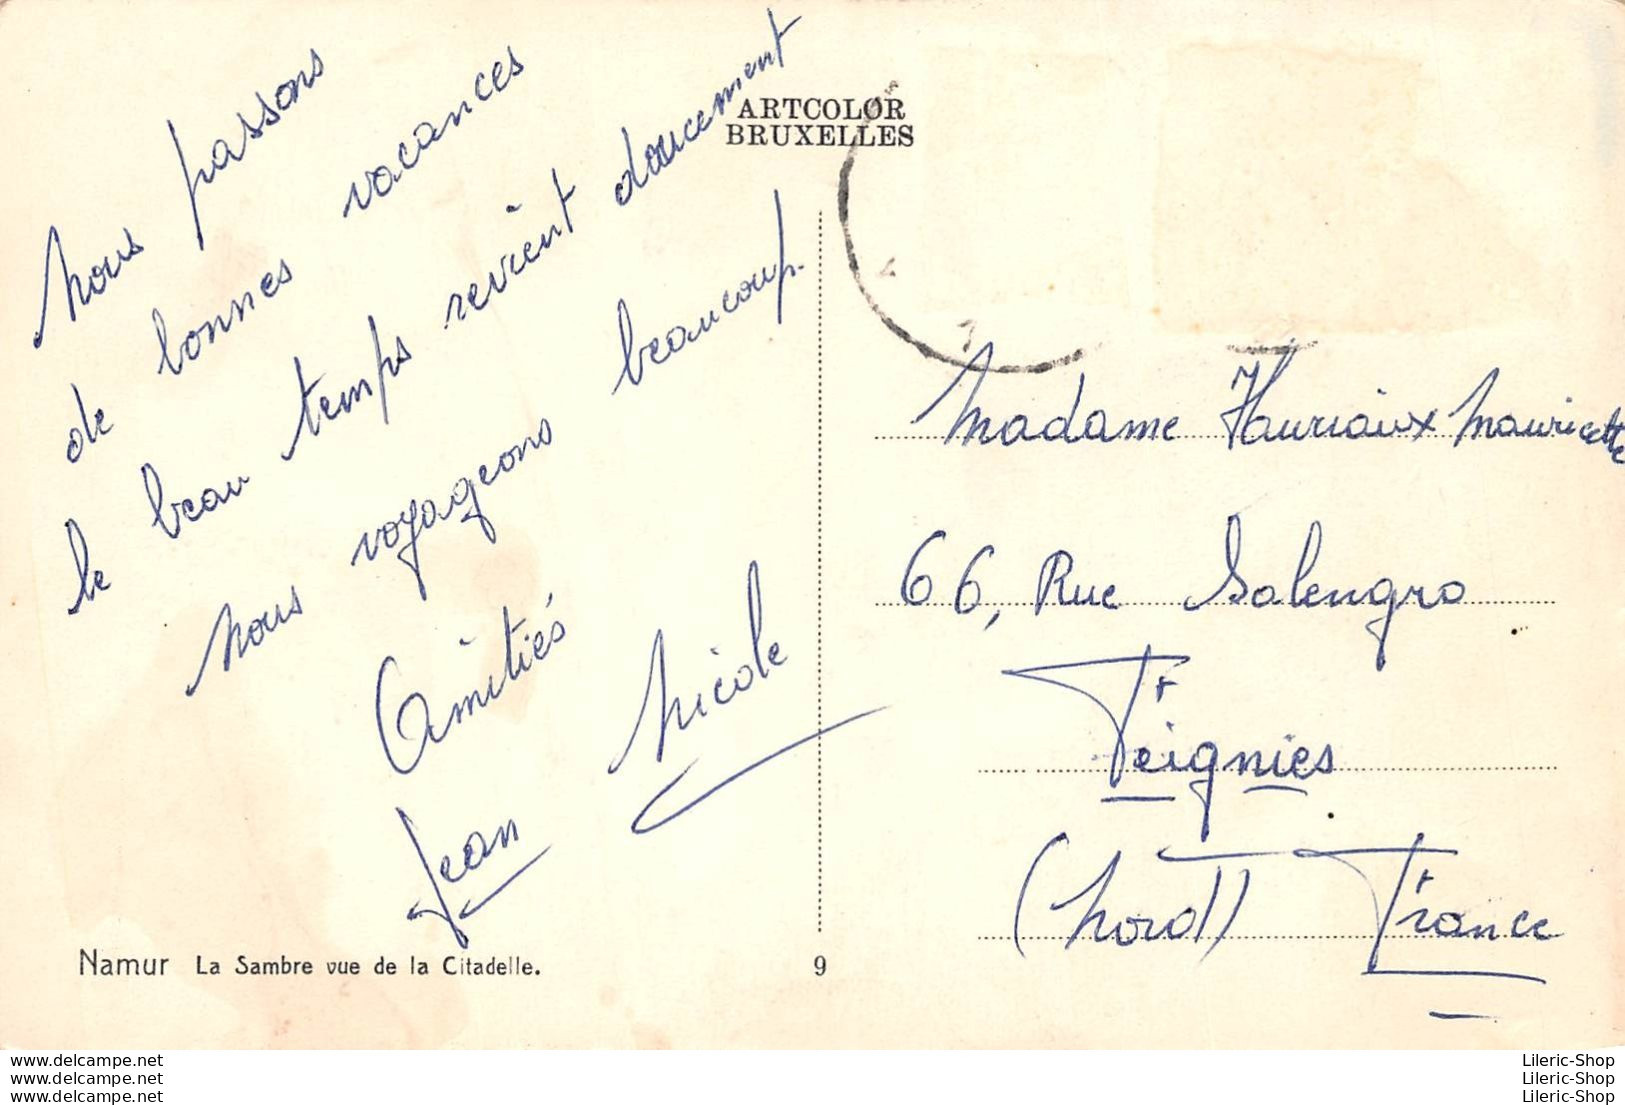 ARTCOLOR
BRUXELLES
Nous passons
de bonnes vacances
le beau temps revient doucement
nous voyageons beaucoup.
Amitiés
Jean Nicole
Madame Hauriaux Mauricette
66, Rue Salengro
Feignies
(Nord) France
Namur La Sambre vue de la Citadelle.
9
www.delcampe.net
www.delcampe.net
www.delcampe.net
Lileric-Shop
Lileric-Shop
Lileric-Shop